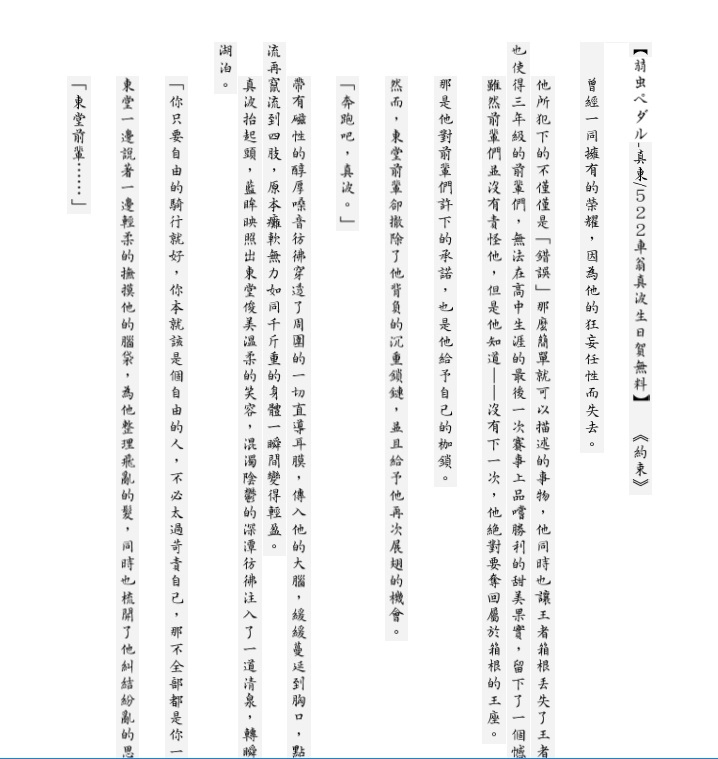 【弱虫ペダル-真東/522車翁真波生日賀無料】　《約束》
曾經一同擁有的榮耀，因為他的狂妄任性而失去。
他所犯下的不僅僅是「錯誤」那麼簡單就可以描述的事物，他同時也讓王者箱根丟失了王者
也使得三年級的前輩們，無法在高中生涯的最後一次賽事上品嚐勝利的甜美果實，留下了一個憾
雖然前輩們並沒有責怪他，但是他知道——沒有下一次，他絕對要奪回屬於箱根的王座。
那是他對前輩們許下的承諾，也是他給予自己的枷鎖。
然而，東堂前輩卻撤除了他背負的沉重鎖鏈，並且給予他再次展翅的機會。
「奔跑吧，真波。」
帶有磁性的醇厚嗓音彷彿穿透了周圍的一切直導耳膜，傳入他的大腦，緩緩蔓延到胸口，點
流再竄流到四肢，原本癱軟無力如同千斤重的身體一瞬間變得輕盈。
真波抬起頭，藍眸映照出東堂俊美溫柔的笑容，混濁陰鬱的深潭彷彿注入了一道清泉，轉瞬
湖泊。
「你只要自由的騎行就好，你本就該是個自由的人，不必太過苛責自己，那不全部都是你一
東堂一邊說著一邊輕柔的撫摸他的腦袋，為他整理飛亂的髮，同時也梳開了他糾結紛亂的思
「東堂前輩……」